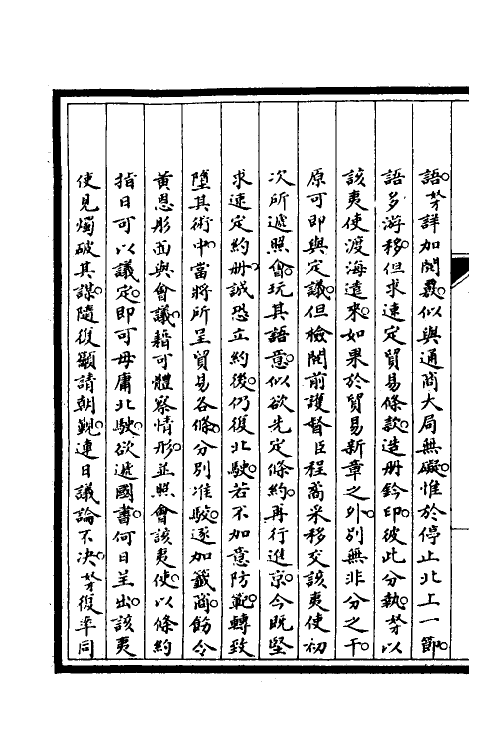 語。等詳加閱覈。似與通商大局無礙。惟於停止北上一節。
語多游移。但求速定貿易條款。造册鈐印。彼此分執。等以
該夷使渡海遠來。如果於貿易新章之外。別無非分之干。
原可即與定議。但檢閱前護督臣程矞采移交該夷使初
次所遞照會。玩其語意。似欲先定條約。再行進京。今既堅
求速定約册。誠恐立約後。仍復北駛。若不加意防範。轉致
墮其術中。當將所呈貿易各條。分別准駮。逐加籤商。飭令
黃恩彤面與會議。藉可體察情形。並照會該夷使。以條約
指日可以議定。即可毋庸北駛。欲遞國書。何日呈出。該夷
使見燭破其謀。隨復顯請朝覲。連日議論不決。等復率同